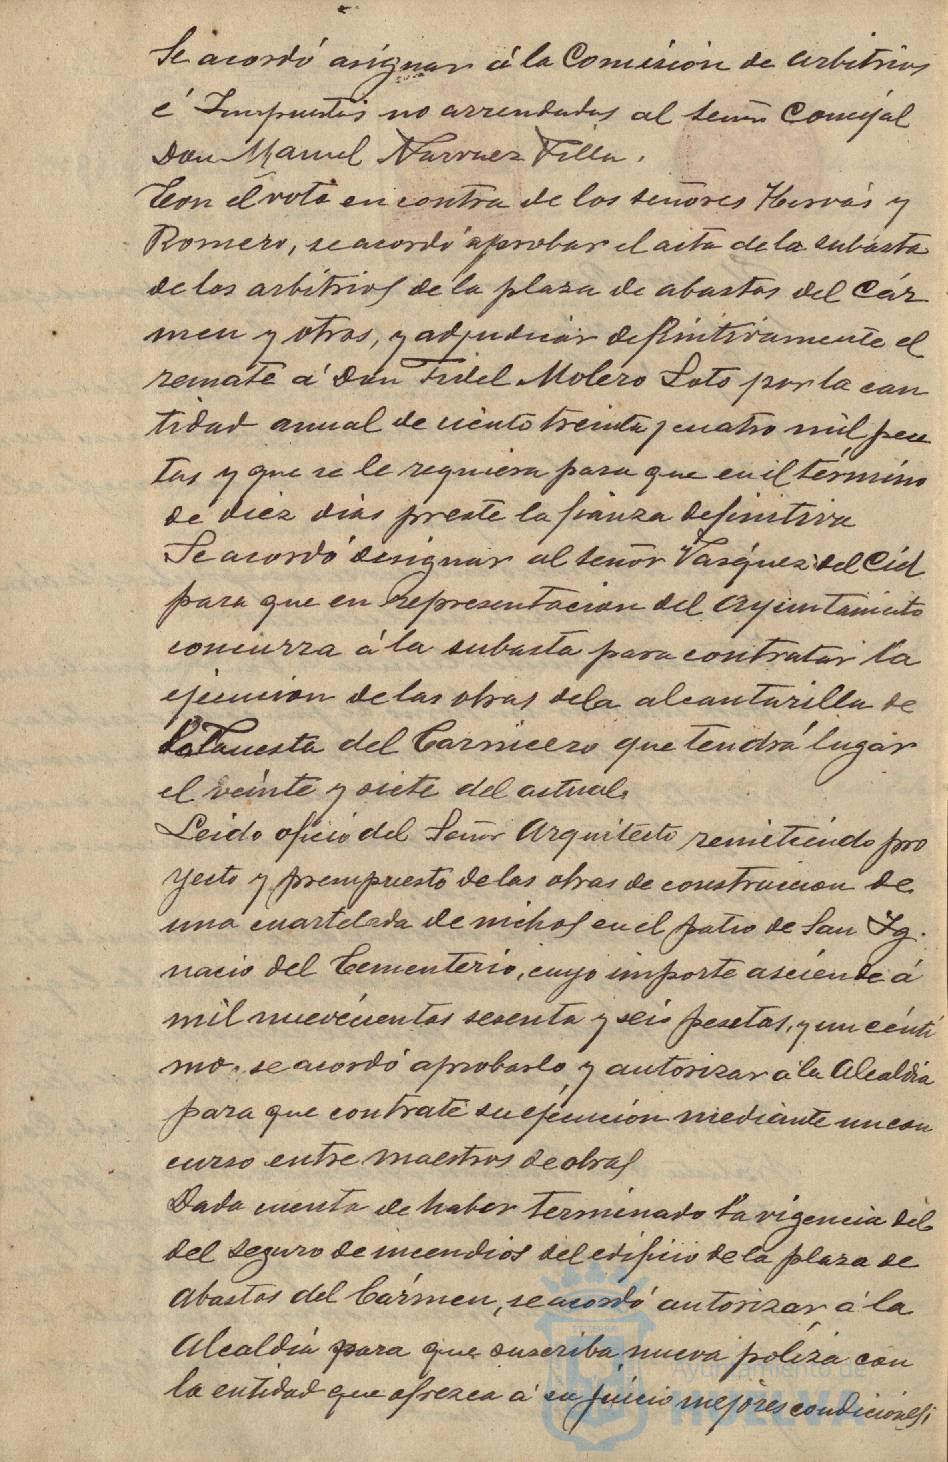 Se acordó asignar á la Comisión de arbitrios
é Impuestos no arrendados al señor Concejal
Don Manuel Narvaez Villa.
Con el voto en contra de los señores Hervás y
Romero, se acordó aprobar el acta de la subasta
de los arbitrios de la plaza de abastos del Cár
men y otros, y adjudicar definitivamente el
remate á Don Fidel Molero Soto por la can
tidad anual de ciento treinta y cuatro mil pese
tas y que se le requiera para que en el término
de diez dias preste la fianza definitiva
Se acordó designar al señor Vasquez del Cid
para que en representacion del Ayuntamiento
concurra á la subasta para contratar la
ejecucion de las obras de la alcantarilla de
la Cuesta del Carnicero que tendrá lugar
el veinte y siete del actual.
Leido oficio del Señor Arquitecto remitiendo pro
yecto y presupuesto de las obras de construccion de
una cuartelada de nichos en el patio de San Ig.
nacio del Cementerio, cuyo importe asciende á
mil nuevecientas sesenta y seis pesetas, y un cénti
mo. se acordó aprobarlo y autorizar á la Alcaldia
para que contrate su ejecución mediante un con
curso entre maestros de obras
Dada cuenta de haber terminado la vigencia del
del seguro de incendios del edificio de la plaza de
Abastos del Cármen, se acordó autorizar á la
Alcaldia para que suscriba nueva póliza con
la entidad que ofrezca á su juicio mejores condiciones;
Ayuntamiento de
HUELVA